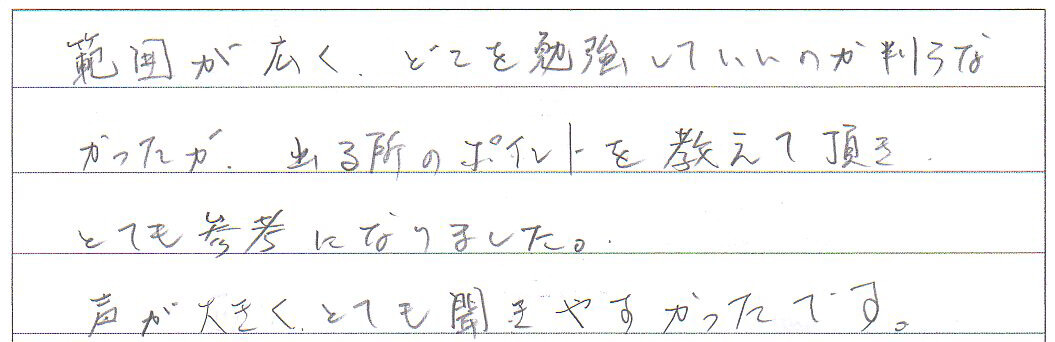 範囲が広く、どこを勉強していいのか判らな
かったが、出る所のポイントを教えて頂き、
とても参考になりました。
声が大きく、とても聞きやすかったです。